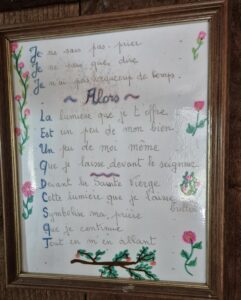 Je ne sais pas prier
Je ne sais que dire
Je n'ai pas beaucoup de temps.
~ Alors ~
La lumière que je t'offre
Est un peu de mon bien
Un peu de moi même
Que je laisse devant le seigneur
Devant la Sainte Vierge
Cette lumière que je laisse brûler
Symbolise ma prière
Que je continue
Tout en m'en allant